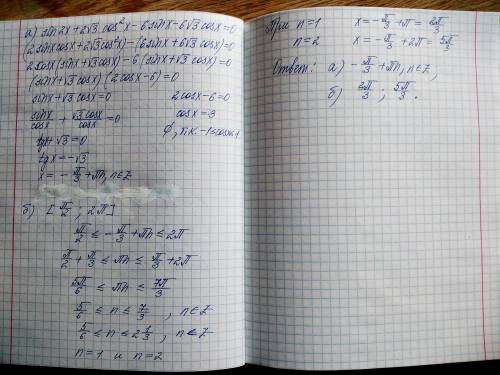 а) sin2x+2√3 cos²x-6sinx-6√3 cosx=0
(2sinxcosx+2√3cos²x)-(6sinx+6√3cosx)=0
2cosx(sinx+√3cosx)-6(sinx+√3cosx)=0
(sinx+√3cosx)(2cosx-6)=0
sinx+√3cosx=0 2cosx-6=0
sinx/cosx + √3cosx/cosx =0 cosx=3
∅, т.к. -1≤cosx≤1
tgx+√3=0
tgx=-√3
x=-π/3+πn, n∈Z
б) [π/2; 2π]
π/2 ≤ -π/3+πn ≤ 2π
π/2+π/3 ≤ πn ≤ π/3+2π
5π/6 ≤ πn ≤ 7π/3
5/6 ≤ n ≤ 7/3, n∈Z
5/6 ≤ n ≤ 2 1/3, n∈Z
n=1 и n=2
При n=1 x=-π/3+π=2π/3
n=2 x=-π/3+2π=5π/3
Ответ: а) -π/3+πn, n∈Z,
б) 2π/3; 5π/3.